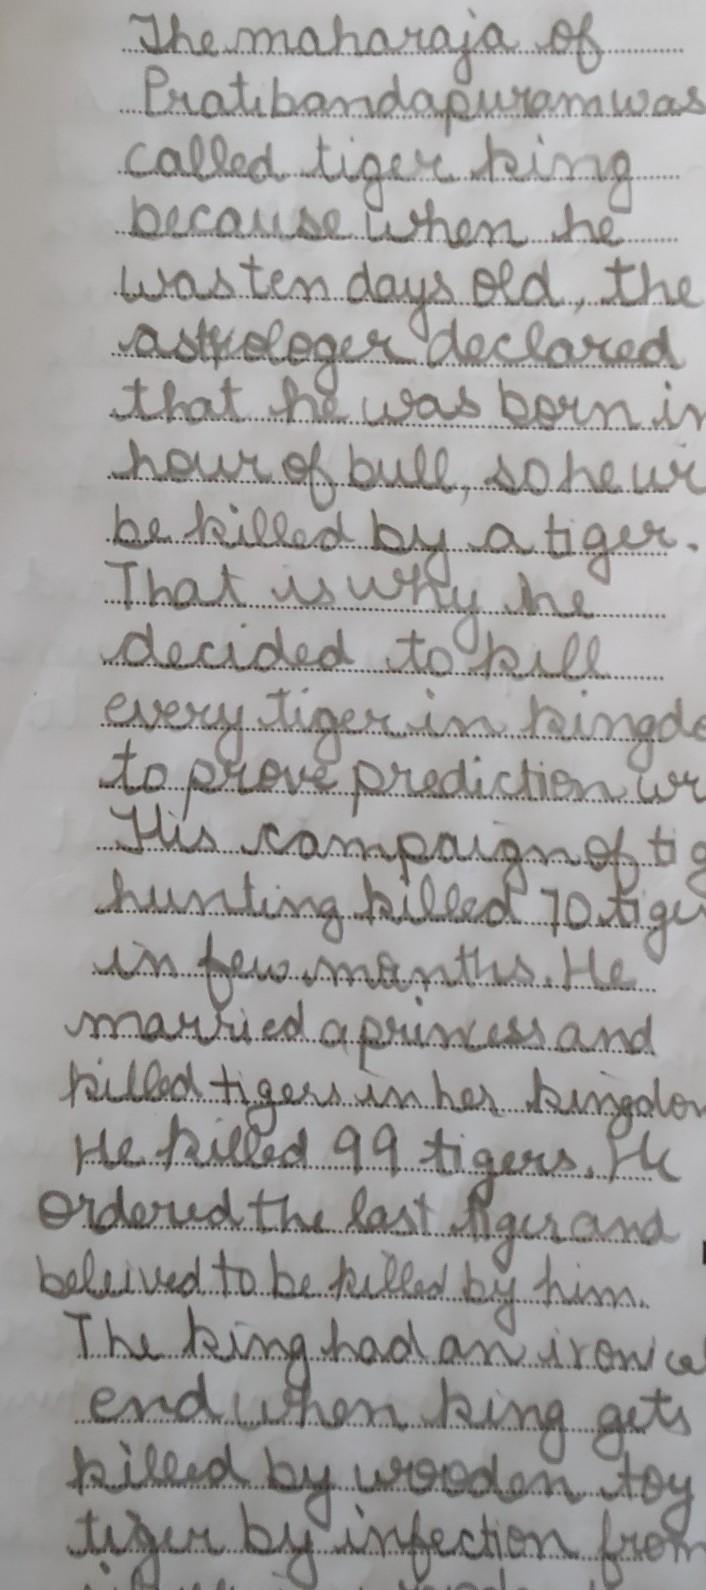 The maharaja of
Pratibandapuram was
called tiger king
because when he
was ten days old, the
astrologer declared
that he was born in
hour of bull, so he
be killed by a tiger.
That is why he
decided to kill
every tiger in
to prove prediction
His campaign of
hunting killed 70
in few months. He
married a princess and
killed tigers in her
He killed 99 tigers. He
ordered the last tiger and
beleived to be killed by him.
The king had an
end when king gets
killed by wooden toy
tiger by infection from